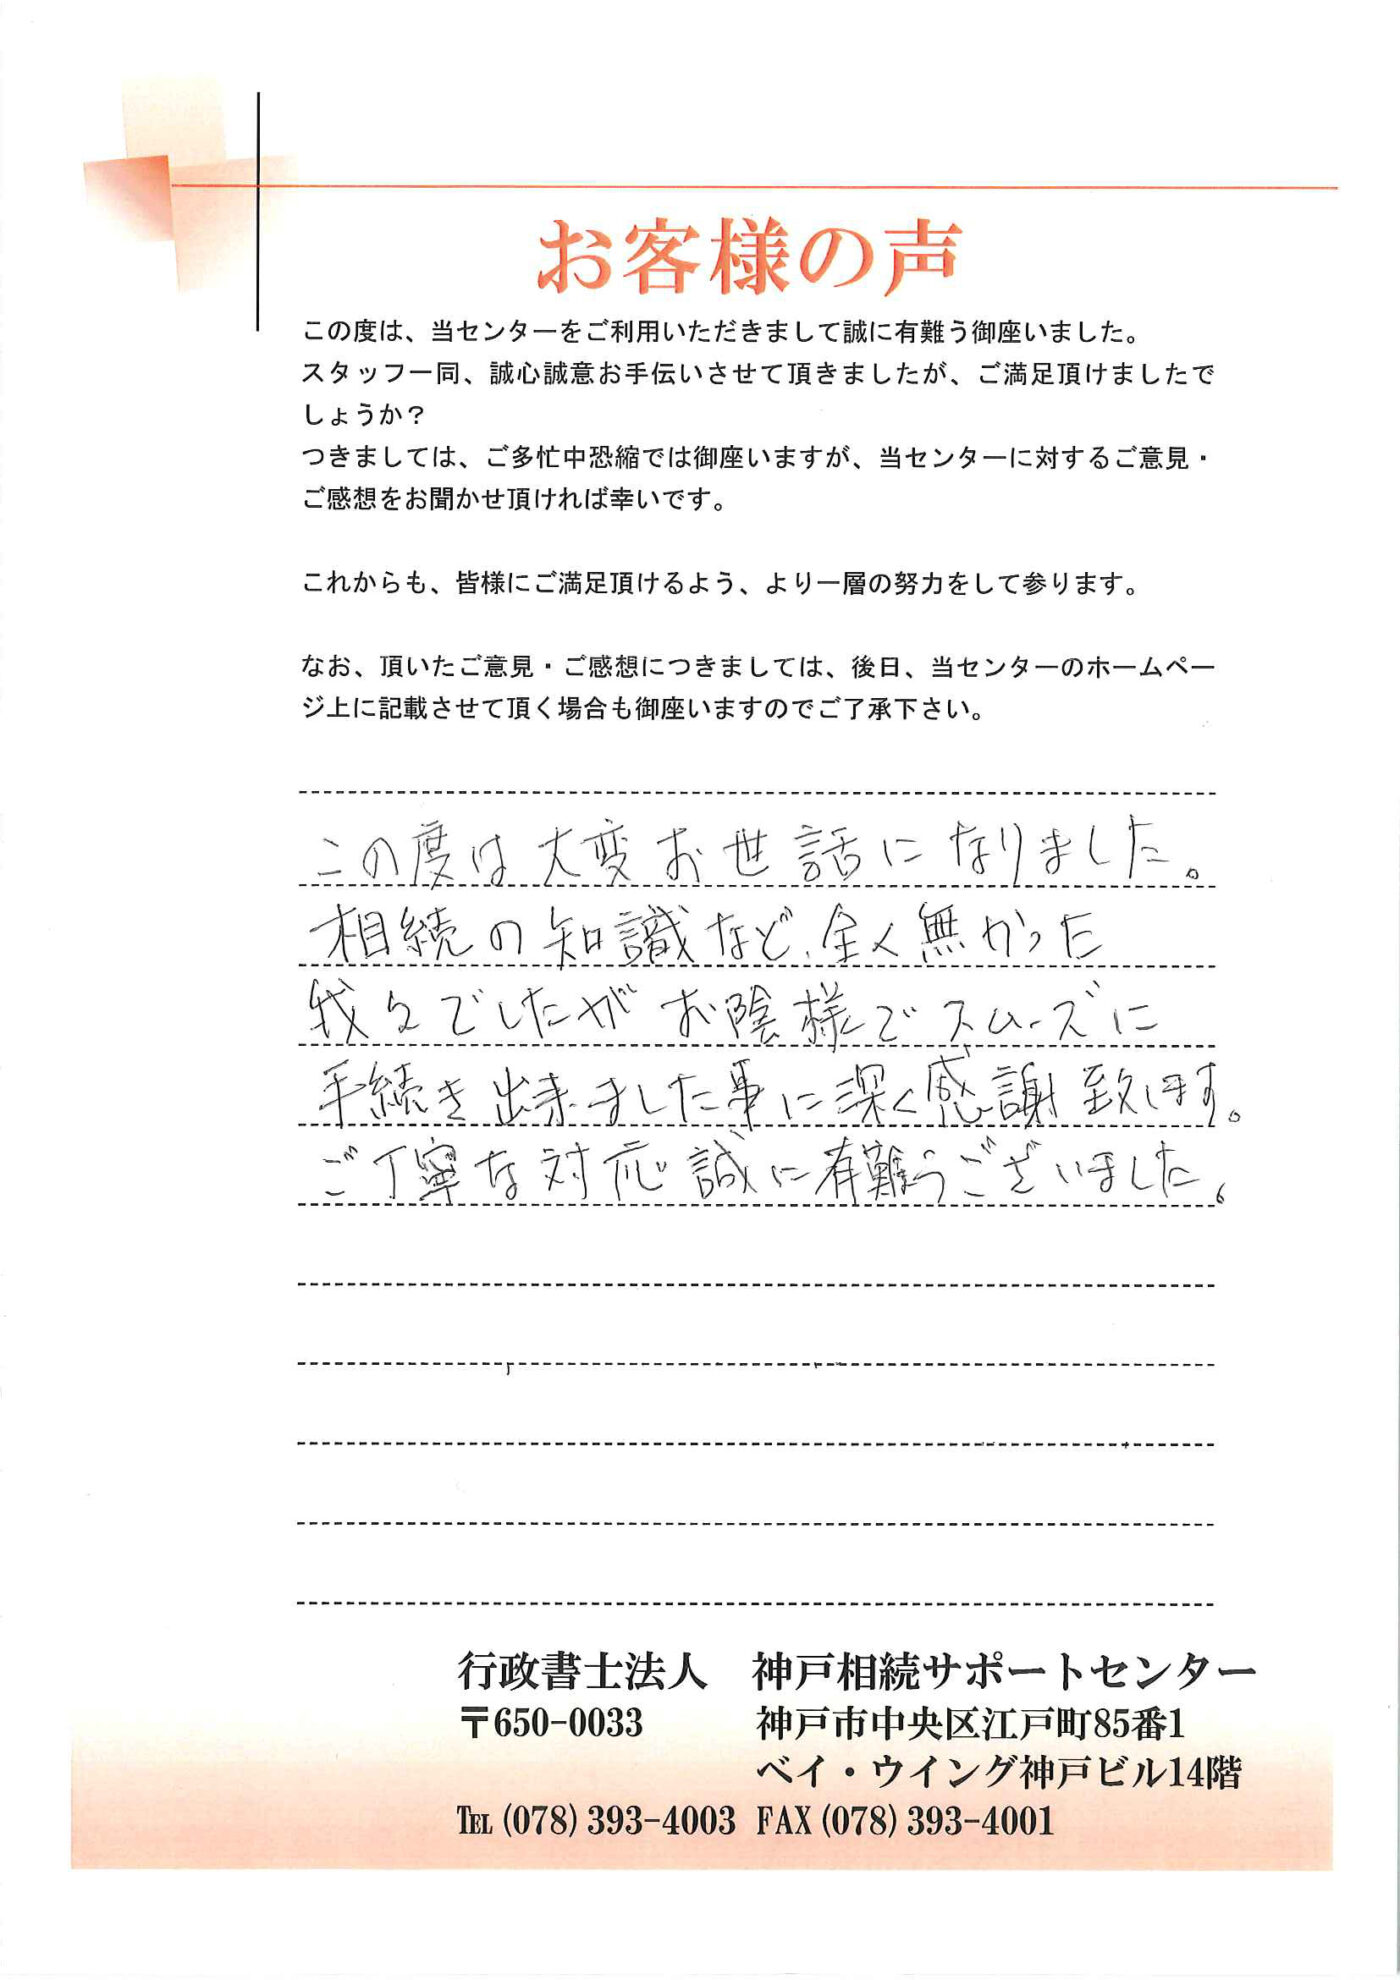 お客様の声
この度は、当センターをご利用いただきまして誠に有難う御座いました。
スタッフ一同、誠心誠意お手伝いさせて頂きましたが、ご満足頂けましたで
しょうか？
つきましては、ご多忙中恐縮では御座いますが、当センターに対するご意見・
ご感想をお聞かせ頂ければ幸いです。
これからも、皆様にご満足頂けるよう、より一層の努力をして参ります。
なお、頂いたご意見・ご感想につきましては、後日、当センターのホームペー
ジ上に記載させて頂く場合も御座いますのでご了承下さい。
この度は大変お世話になりました。
相続の知識など、全く無かった
我々でしたがお陰様でスムーズに
手続き出来ました事に深く感謝致します。
ご丁寧な対応誠に有難うございました。
行政書士法人 神戸相続サポートセンター
〒650-0033 神戸市中央区江戸町85番1
ベイ・ウイング神戸ビル14階
TEL (078) 393-4003 FAX (078) 393-4001